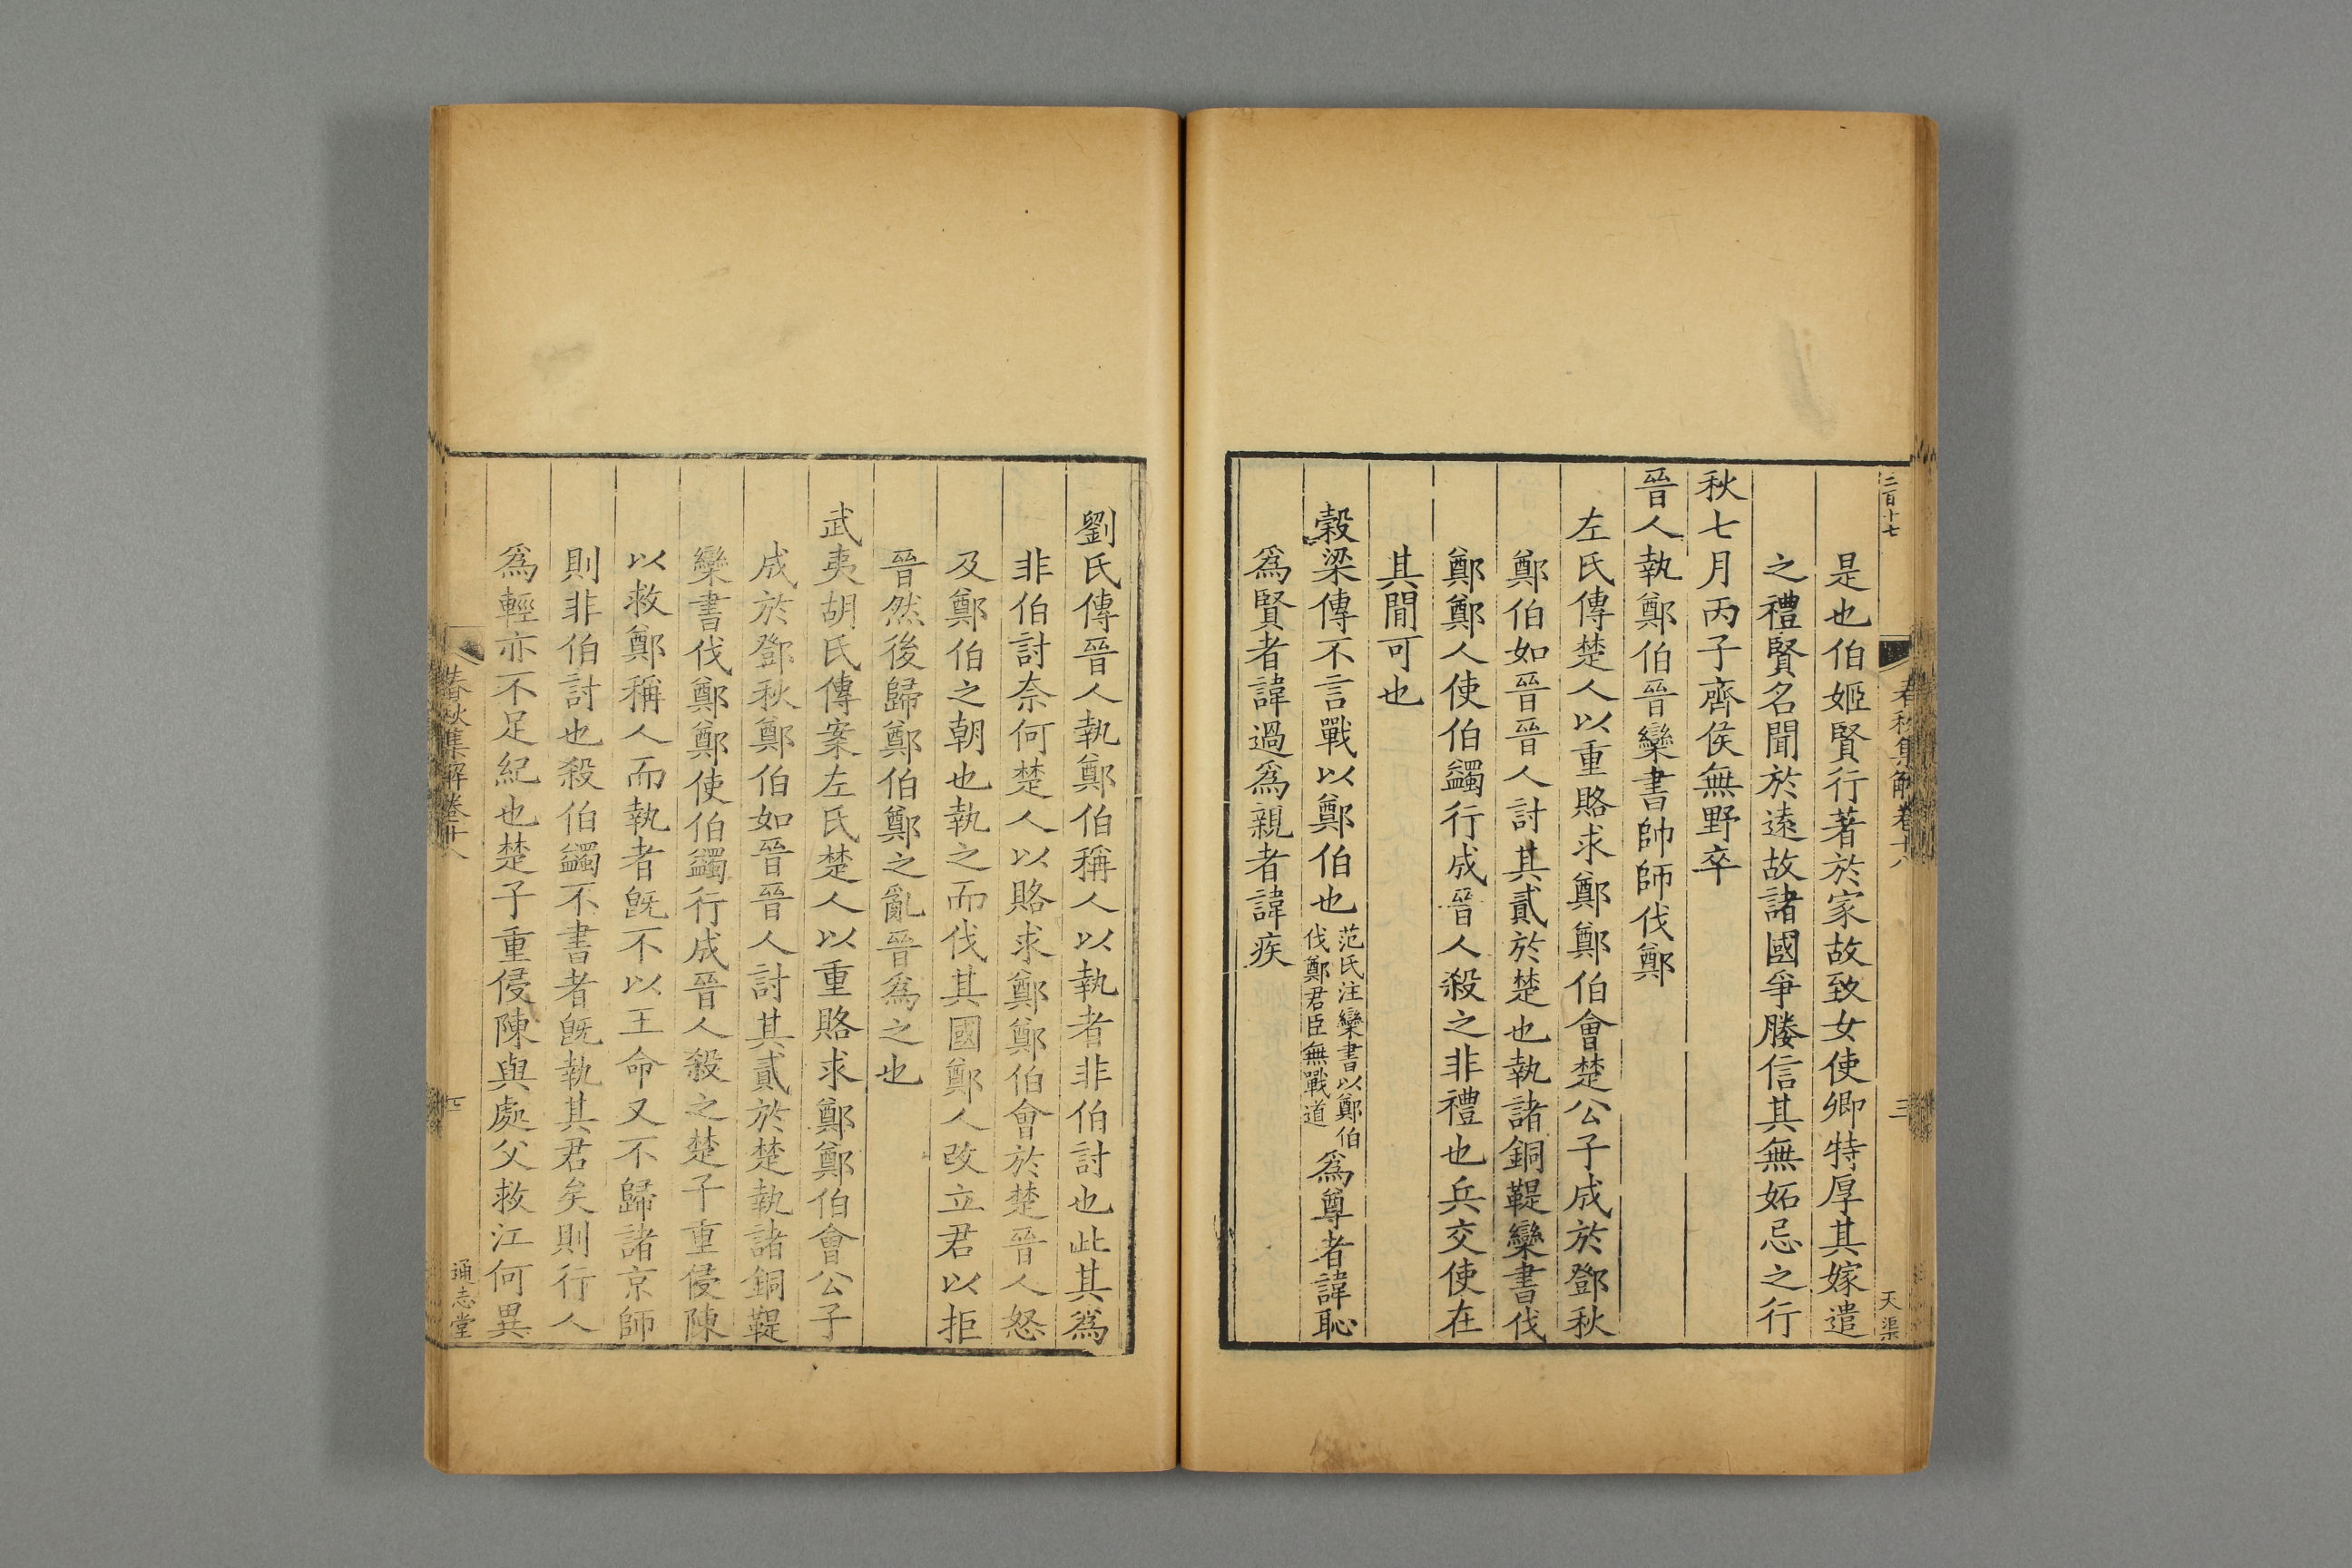 二百十七
春秋集解卷十八
三
天渠
是也伯姬賢行著於家故致女使卿特厚其嫁遣
之禮賢名聞於遠故諸國爭媵信其無妬忌之行
秋七月丙子齊侯無野卒
晉人執鄭伯晉欒書帥師伐鄭
左氏傳楚人以重賂求鄭鄭伯會楚公子成於鄧秋
鄭伯如晉晉人討其貳於楚也執諸銅鞮欒書伐
鄭鄭人使伯蠲行成晉人殺之非禮也兵交使在
其閒可也
穀梁傳不言戰以鄭伯也范氏注欒書以鄭伯
伐鄭君臣無戰道
爲尊者諱恥
爲賢者諱過爲親者諱疾
劉氏傳晉人執鄭伯稱人以執者非伯討也此其爲
非伯討奈何楚人以賂求鄭鄭伯會於楚晉人怒
及鄭伯之朝也執之而伐其國鄭人改立君以拒
晉然後歸鄭伯鄭之亂晉爲之也
武夷胡氏傳案左氏楚人以重賂求鄭鄭伯會公子
成於鄧秋鄭伯如晉晉人討其貳於楚執諸銅鞮
欒書伐鄭鄭使伯蠲行成晉人殺之楚子重侵陳
以救鄭稱人而執者旣不以王命又不歸諸京師
則非伯討也殺伯蠲不書者旣執其君矣則行人
爲輕亦不足紀也楚子重侵陳與處父救江何異
春秋集解卷十八
通志堂